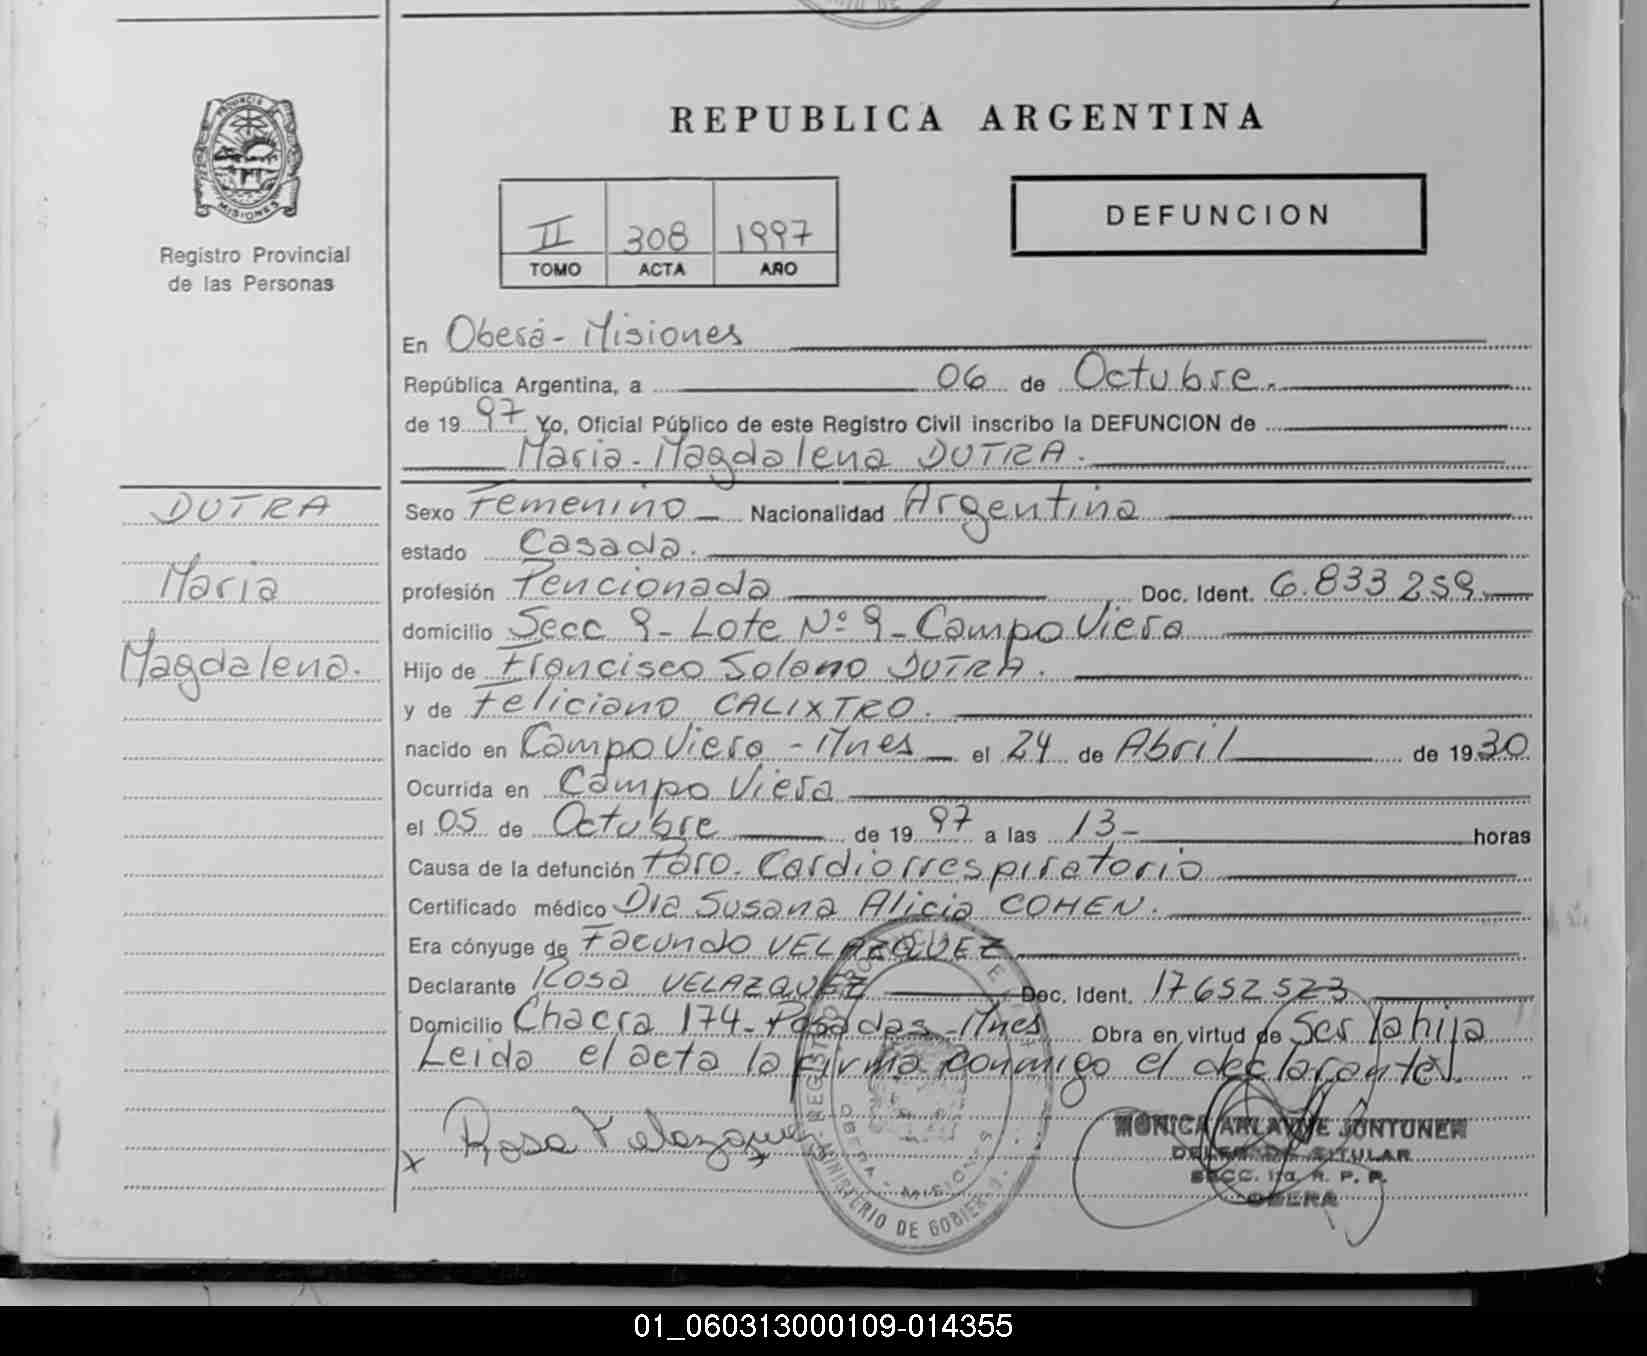 PROVINCIA DE
MISIONES
Registro Provincial
de las Personas
REPUBLICA ARGENTINA
II 308 1997
TOMO ACTA AÑO
DEFUNCION
En Oberá - Misiones
República Argentina, a 06 de Octubre.
de 19 97 Yo, Oficial Público de este Registro Civil inscribo la DEFUNCION de
Maria - Magdalena DUTRA.
DUTRA
Maria
Magdalena.
Sexo Femenino Nacionalidad Argentina
estado Casada.
profesión Pencionada Doc. Ident. 6.833.259
domicilio Secc 9 - Lote Nº 9 - Campo Viera
Hijo de Francisco Solano DUTRA.
y de Feliciano CALIXTRO.
nacido en Campo Viera - Mnes el 24 de Abril de 1930
Ocurrida en Campo Viera
el 05 de Octubre de 19 97 a las 13 - horas
Causa de la defunción Paro. Cardiorrespiratorio
Certificado médico Dra Susana Alicia COHEN.
Era cónyuge de Facundo VELAZQUEZ
Declarante Rosa VELAZQUEZ Doc. Ident. 17652523
Domicilio Chacra 174 - Posadas - Mnes Obra en virtud de Ser la hija
Leida el acta la firma conmigo el declarante.
x Rosa Velazquez x
OBERA - MISIONES
MINISTERIO DE GOBIERNO
MONICA ARLAINE JUNTUNEN
TITULAR
SECC. 1ra. R. P. P.
OBERA
01_060313000109-014355